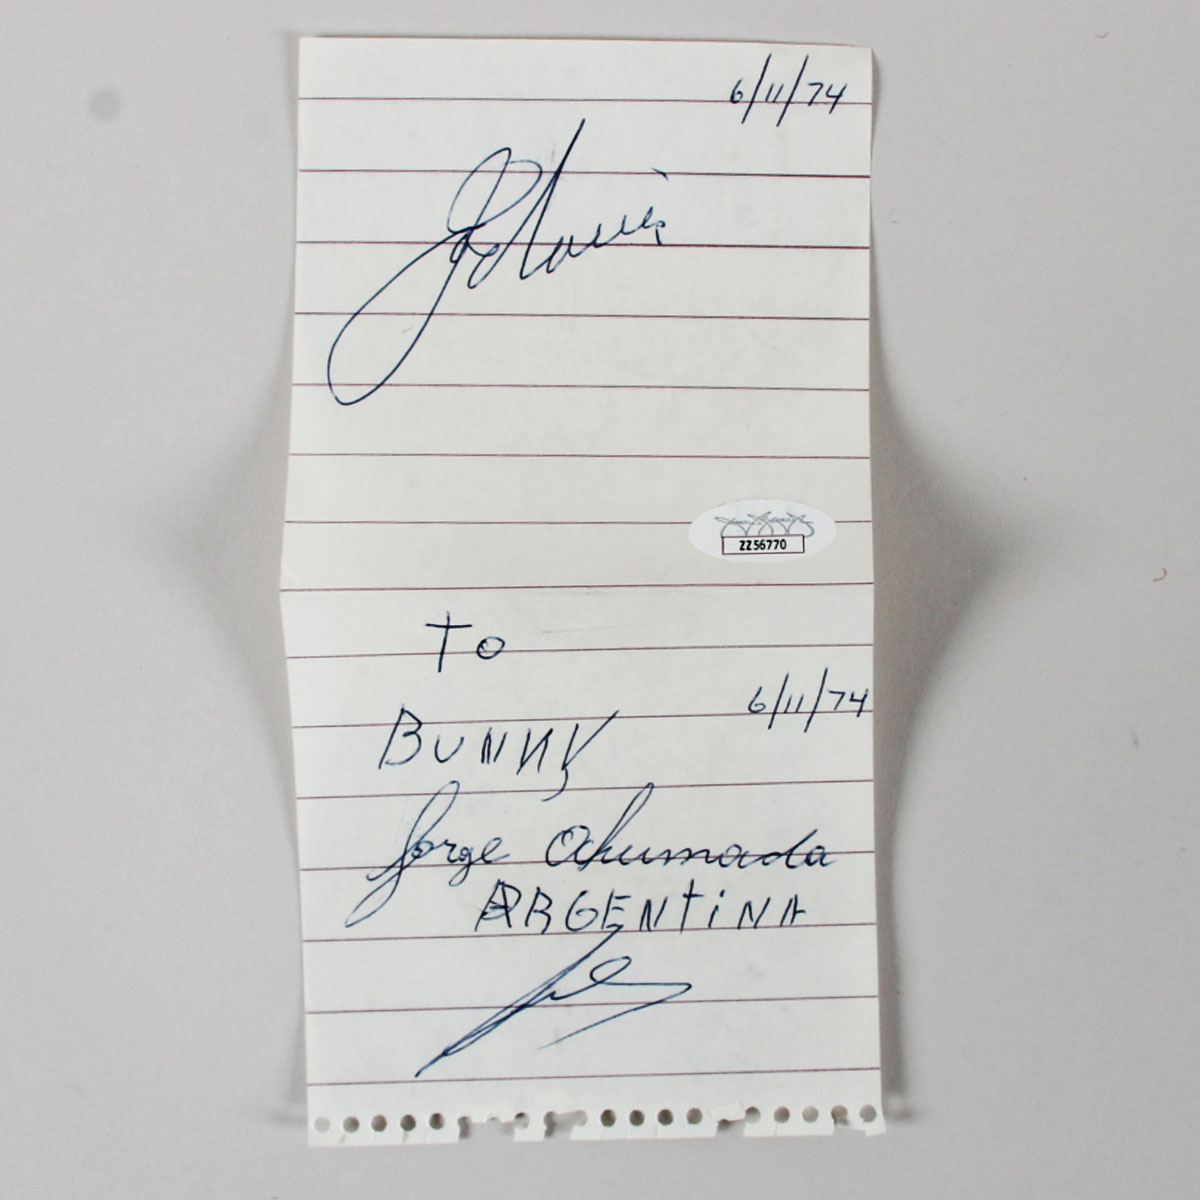 6/11/74
ZZ56770
To
6/11/74
BUNNY
Jorge Ahumada
ARGENTINA